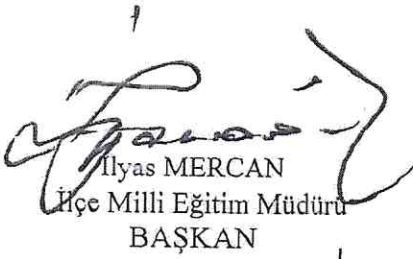 İlyas MERCAN
İlçe Milli Eğitim Müdürü
BAŞKAN